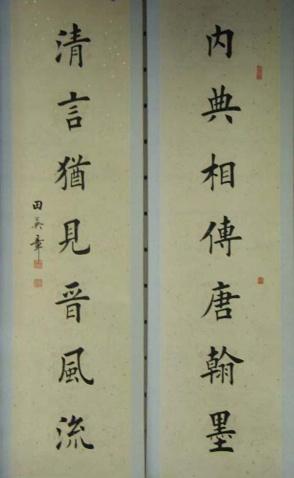 内典相傳唐翰墨
清言猶見晉風流
田英章